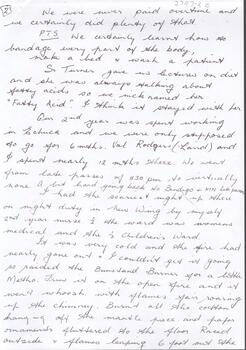 8
We were never paid overtime and
we certainly did plenty of that
PTS We certainly learnt how to
bandage every part of the body,
make a bed & wash a patient
Sr Turner gave us lectures on diet
and she was always talking about
fatty acids so we nick named her
"Fatty Acid" & I think it stayed with her
Our 2nd year was spent working
in Echuca and we were only supposed
to go for 6 mths. Val Rodgers (Laird) and
I spent nearly 12 mths there. We went
from late passes of 11.30 pm to virtually
none & but had going back to Bendigo
I had the scariest night up there
on night duty in New Wing by myself
2nd year nurse ½ the ward was womens
medical and the ½ Children's Ward
It was very cold and the fire had
nearly gone out & I couldn't get it going
so raided the Bunsland Burner for a little
Metho. Threw it on the open fire and it
went whoosh with flames roaring
up the chimney. Burnt all the cotton
hanging off the mantle piece and paper
ornaments fluttered to the floor Raced
outside & flames leaping 6 foot out the